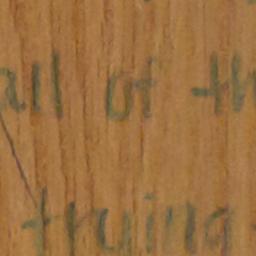 all of th
trying